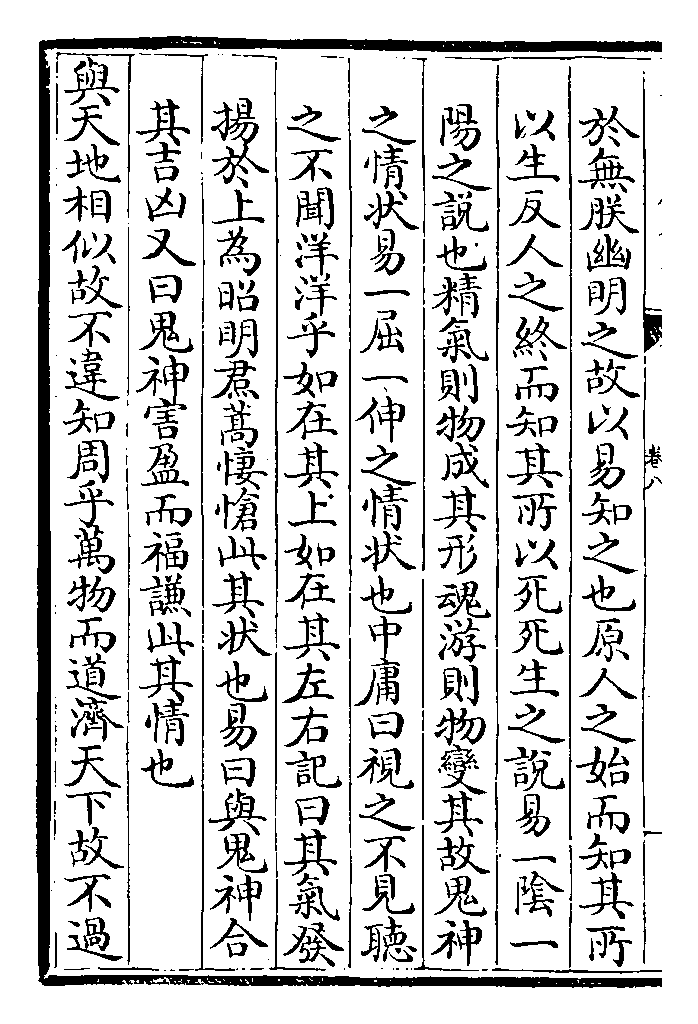 於無朕幽明之故以易知之也原人之始而知其所
以生反人之終而知其所以死死生之說易一陰一
陽之說也精氣則物成其形魂游則物變其故鬼神
之情状易一屈一伸之情状也中庸曰視之不見聽
之不聞洋洋乎如在其上如在其左右記曰其氣發
揚於上為昭明焄蒿悽愴此其状也易曰與鬼神合
其吉凶又曰鬼神害盈而福謙此其情也
與天地相似故不違知周乎萬物而道濟天下故不過
卷八